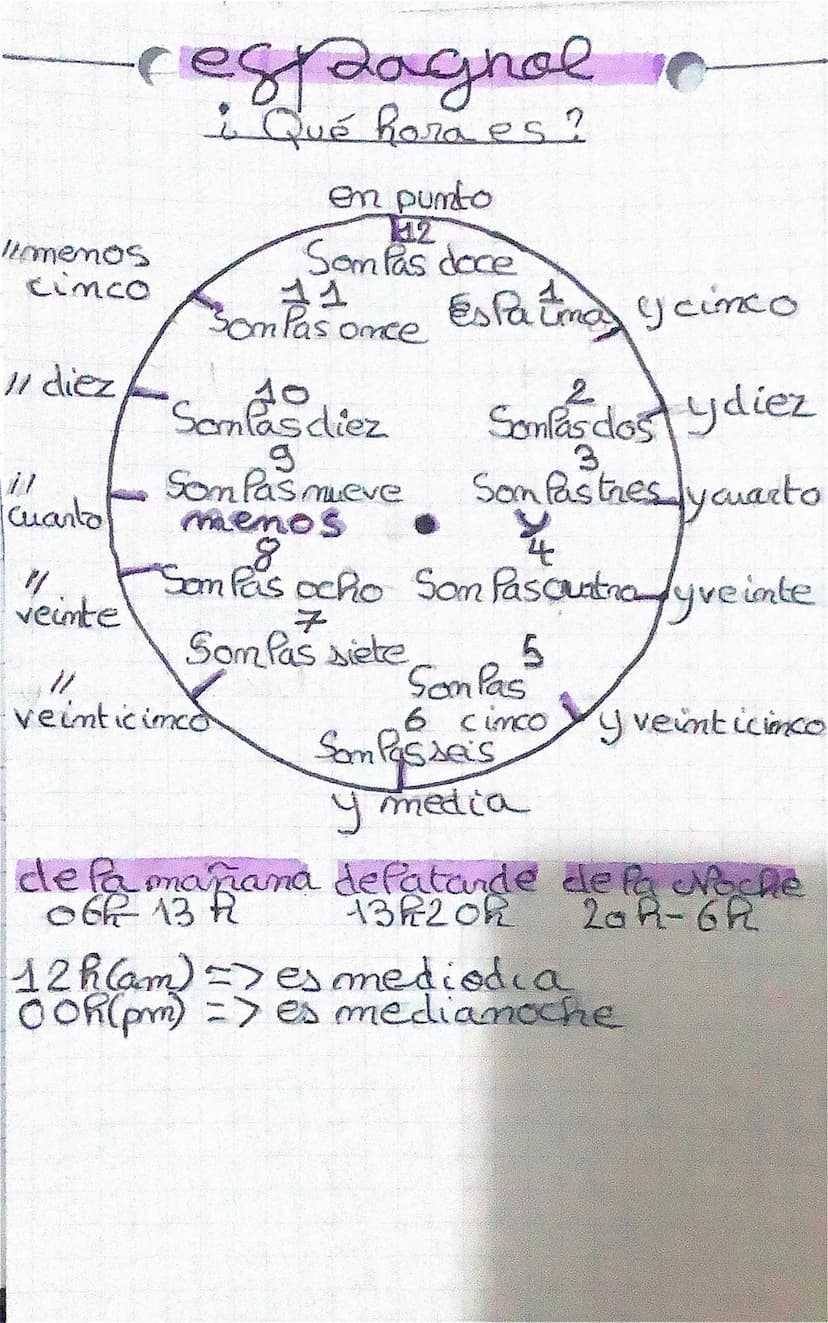 espagnol
¿ Qué hora es ?
en punto
12
Son las doce
11
Son las once
1
Es la una
10
Son las diez
2
Son las dos
9
Son las nueve
3
Son las tres
menos
y
8
Son las ocho
4
Son las cuatro
7
Son las siete
5
Son las
cinco
6
Son las seis
y cinco
y diez
y cuarto
y veinte
y veinticinco
y media
//
veinticinco
//
veinte
//
cuarto
// diez
// menos
cinco
de la mañana de la tarde de la Noche
06h-13h 13h-20h 20h-6h
12h(am) => es mediodia
00h(pm) => es medianoche